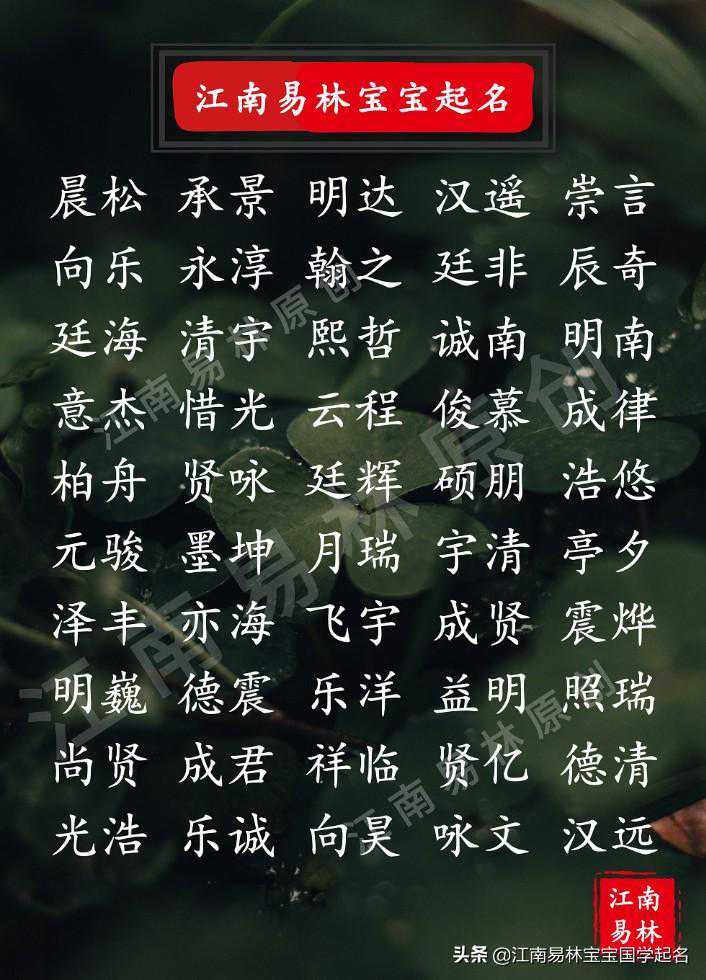 江南易林宝宝起名
晨松 承景 明达 汉遥 崇言
向乐 永淳 翰之 廷非 辰奇
廷海 清宇 熙哲 诚南 明南
意杰 惜光 云程 俊慕 成律
柏舟 贤咏 廷辉 硕朋 浩悠
元骏 墨坤 月瑞 宇清 亭夕
泽丰 亦海 飞宇 成贤 震烨
明巍 德震 乐洋 益明 照瑞
尚贤 成君 祥临 贤亿 德清
光浩 乐诚 向昊 咏文 汉远
江南易林原创
江南易林原创
江南易林原创
江南
易林
头条 @江南易林宝宝国学起名